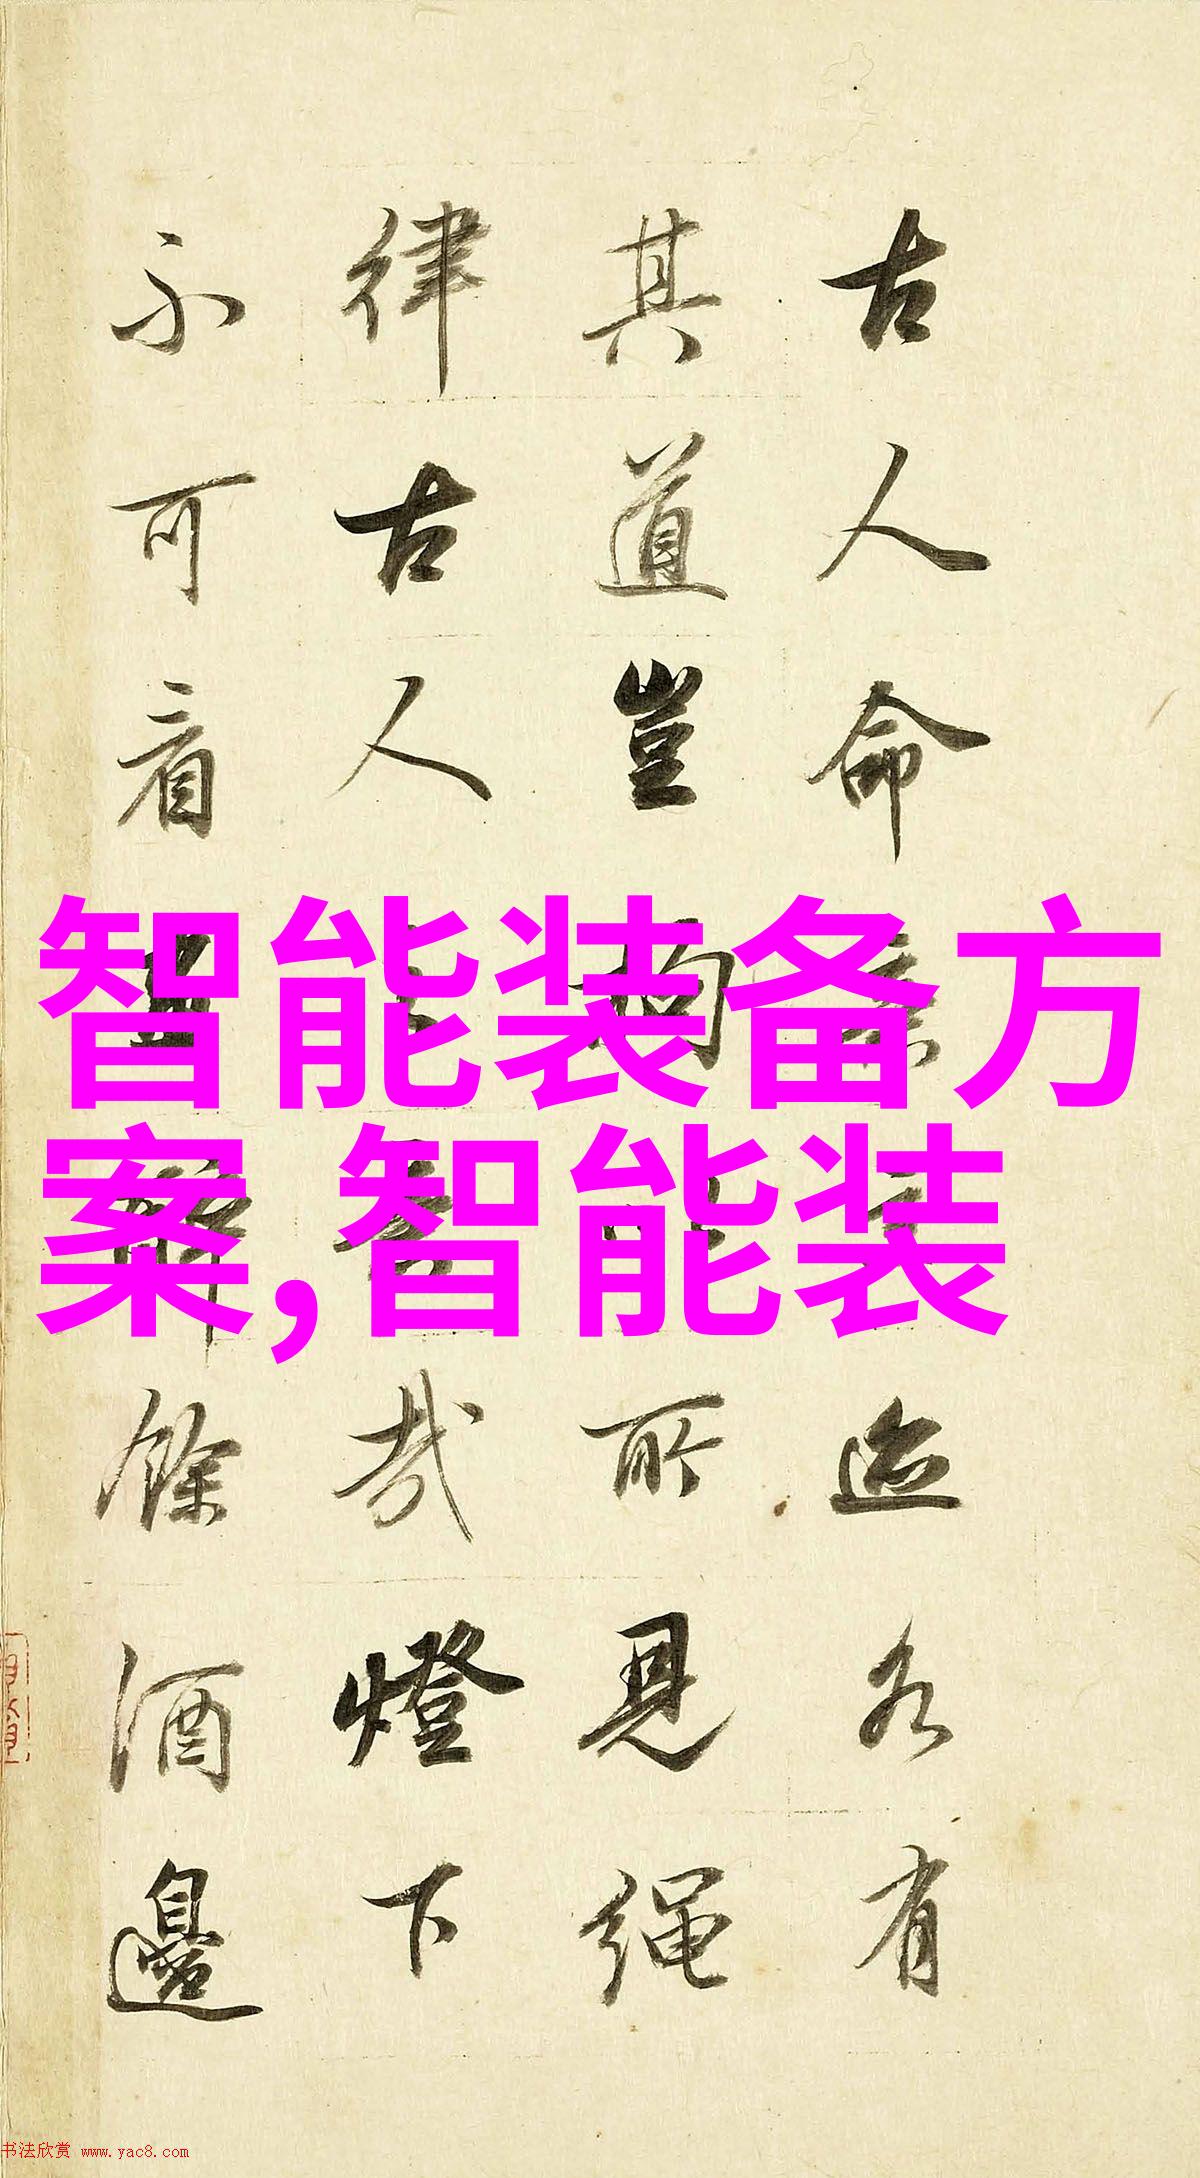 古人命迹各有
其道豈所見繩
律古人哉燈下
不可看餘酒邊
智能装备方
案,智能装
书法欣赏 www.yac8.com